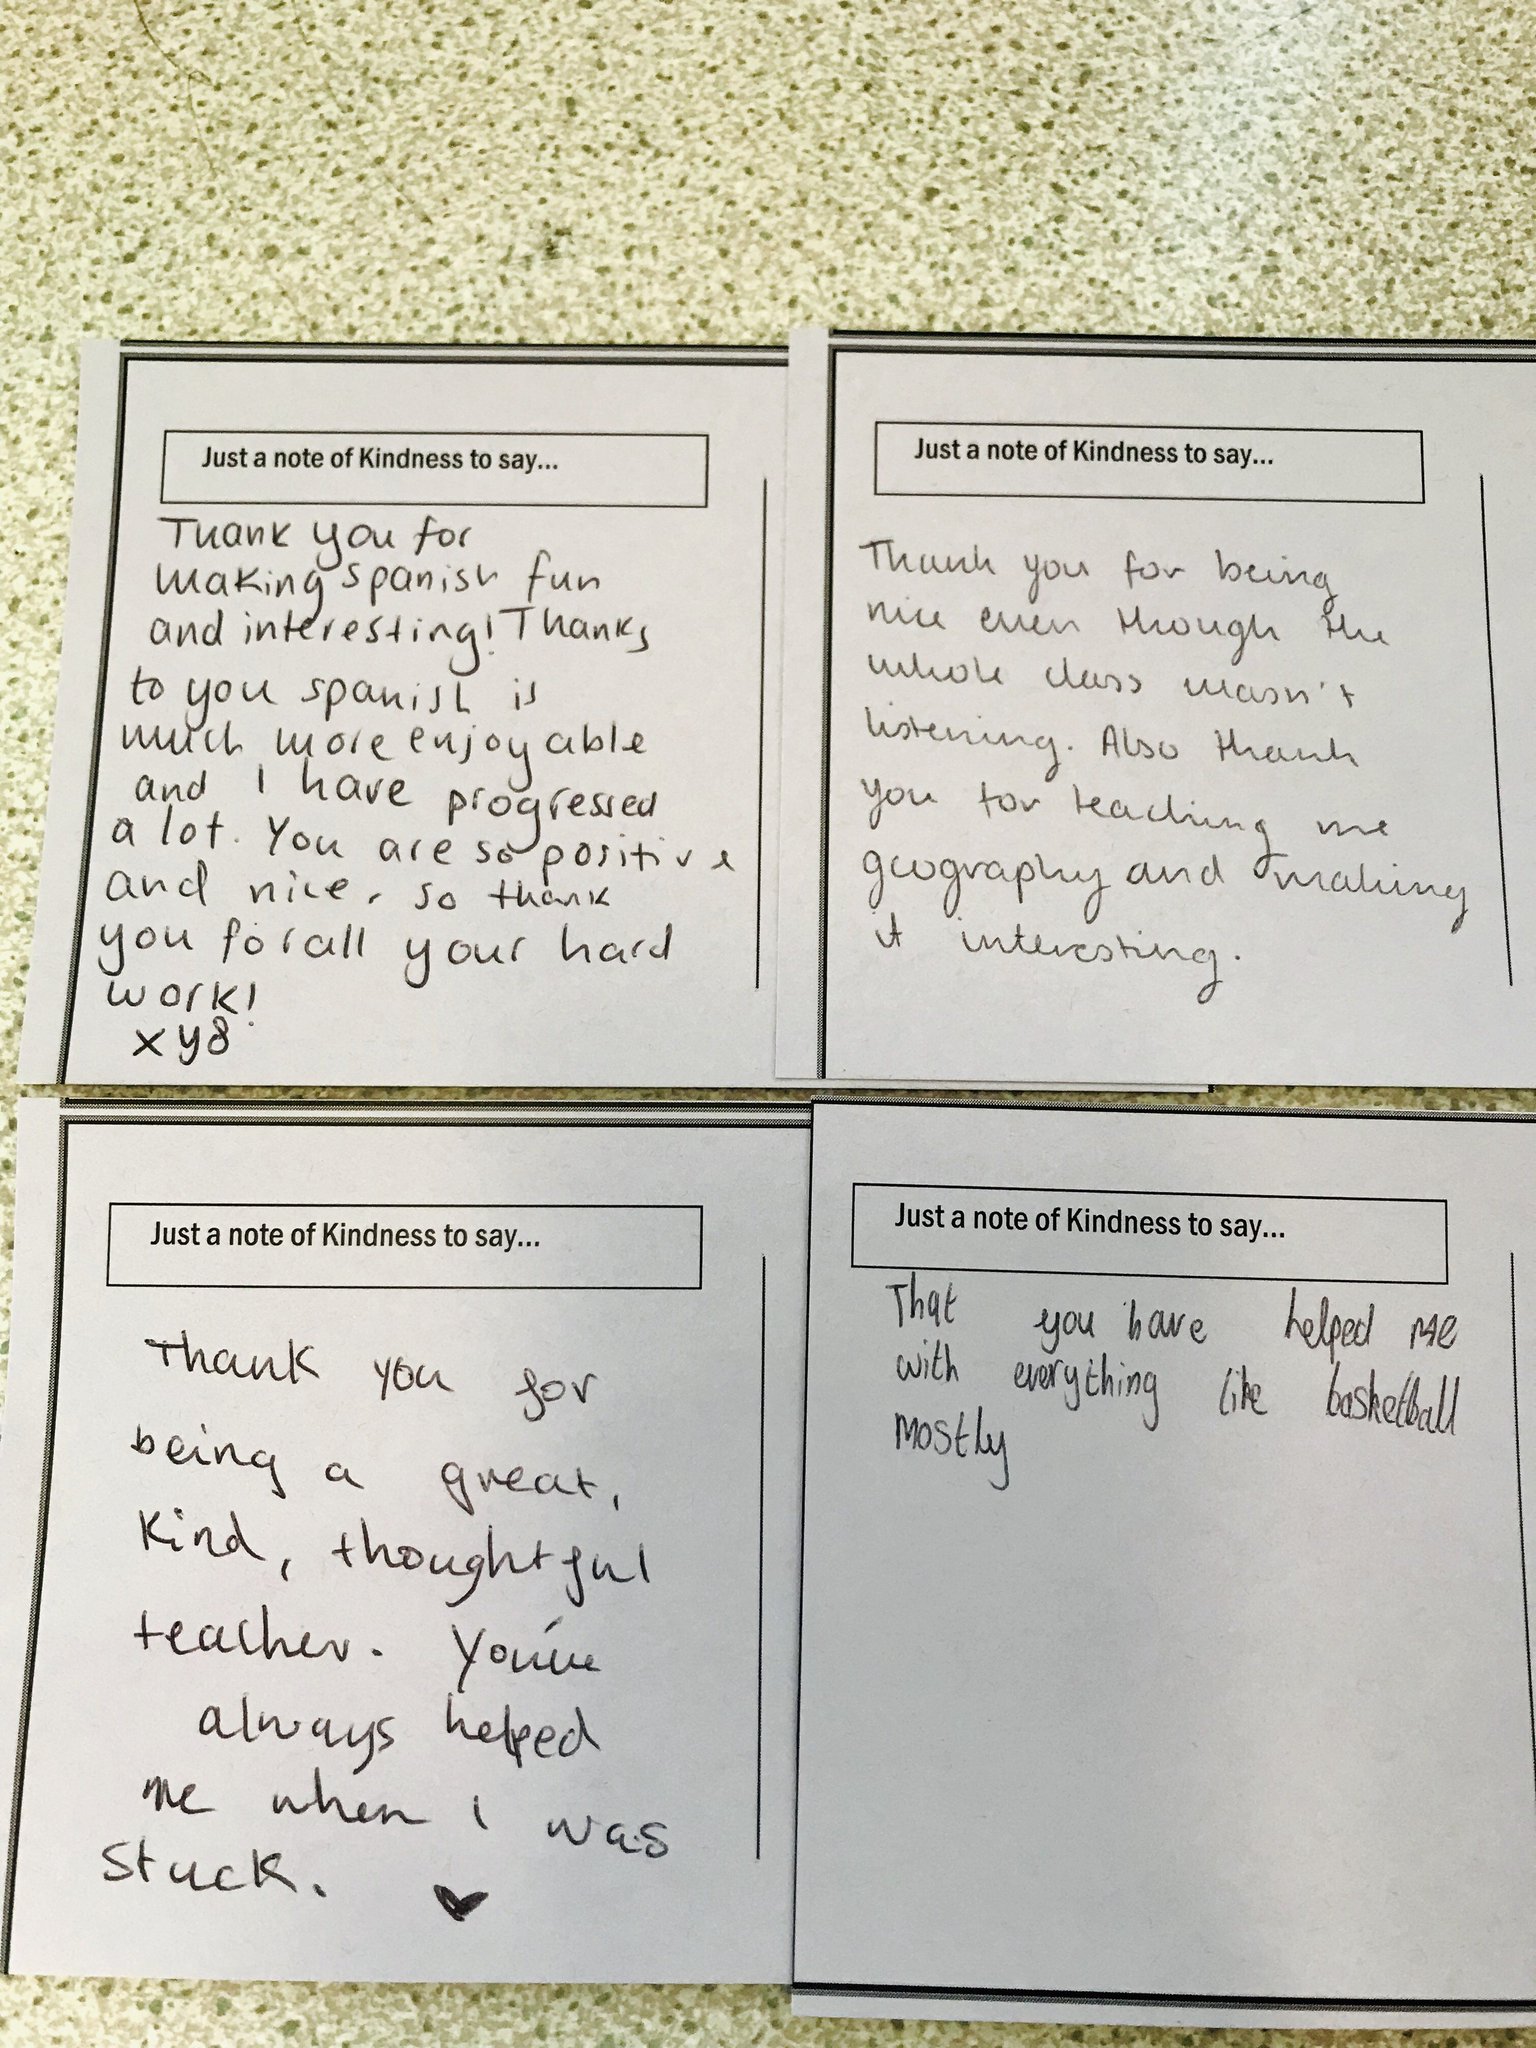 Just a note of Kindness to say...
Thank you for
making spanish fun
and interesting! Thanks
to you spanish is
much more enjoyable
and I have progressed
a lot. You are so positive
and nice, so thank
you for all your hard
work!
x y8
Just a note of Kindness to say...
Thank you for being
nice even though the
whole class wasn't
listening. Also thank
you for teaching me
geography and making
it interesting.
Just a note of Kindness to say...
Thank you for
being a great,
kind, thoughtful
teacher. You've
always helped
me when I was
stuck. ♥
Just a note of Kindness to say...
That you have helped me
with everything like basketball
mostly